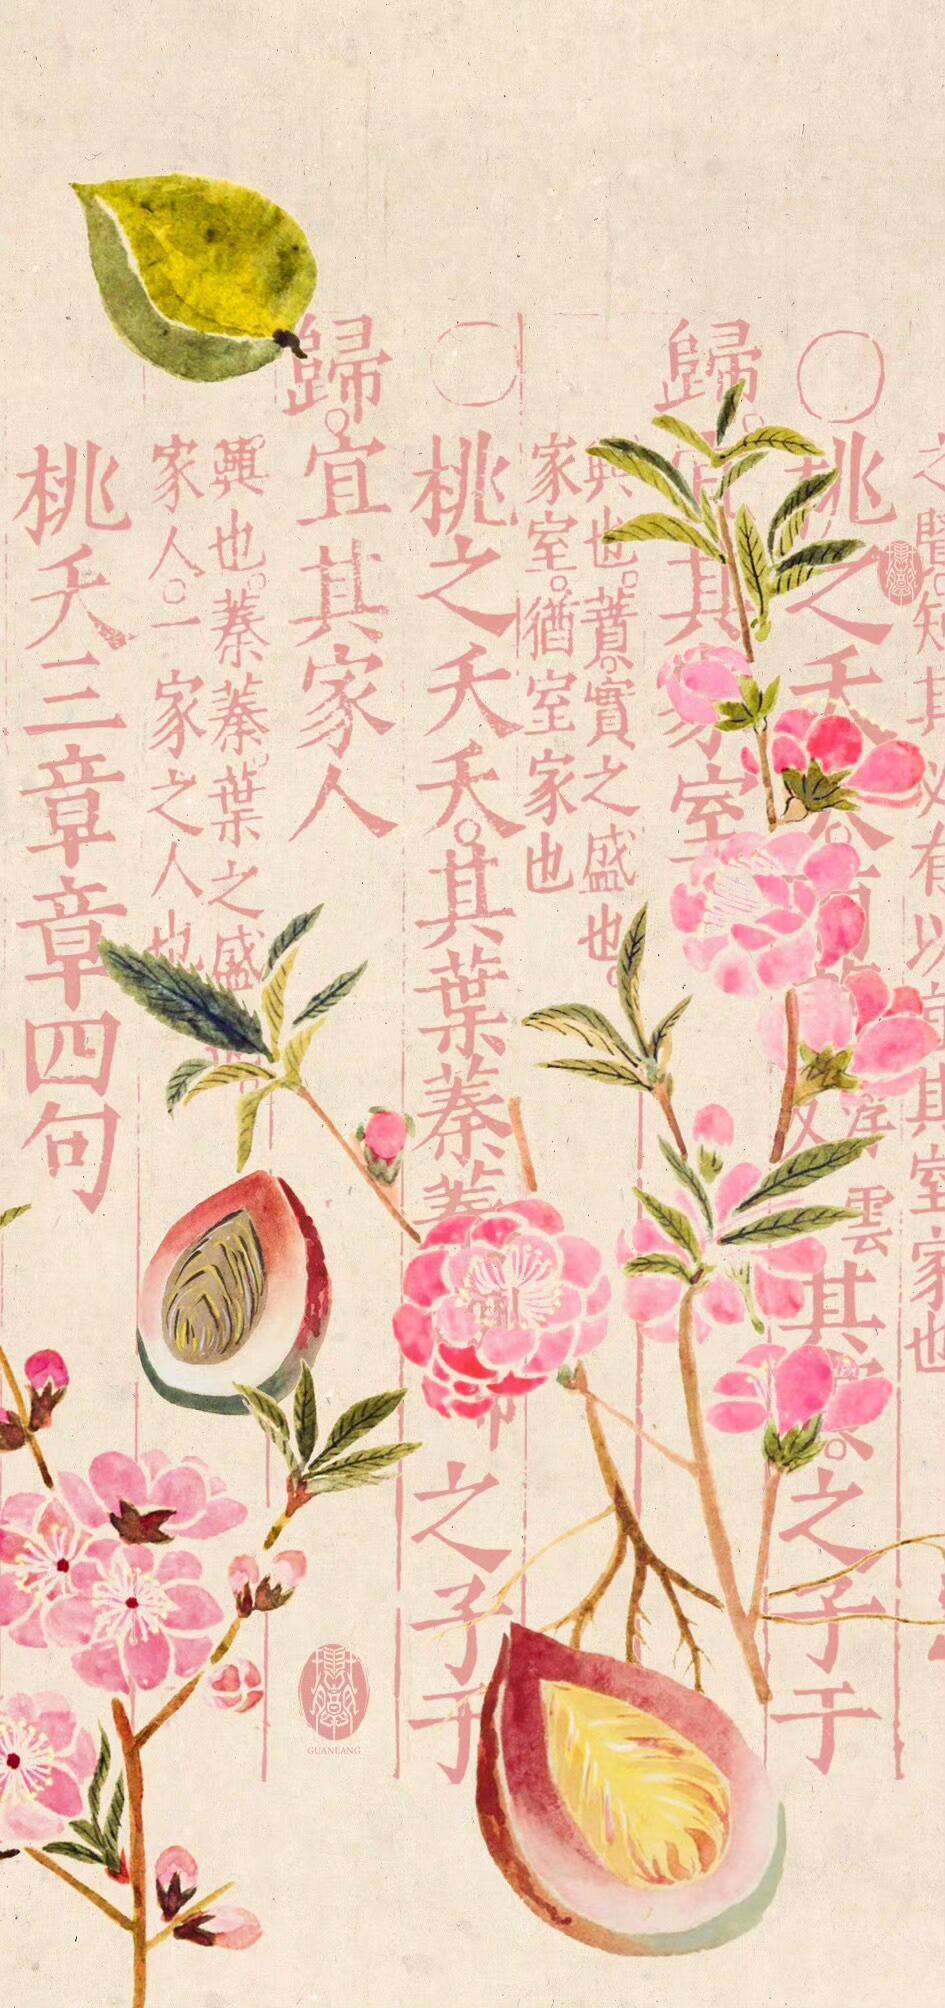 之賢。知其必有以宜其室家也
○桃之夭夭。有蕡浮雲其實。之子于
歸。宜其家室
興也。蕡。實之盛也。
家室。猶室家也
○桃之夭夭。其葉蓁蓁之子于
歸。宜其家人
興也。蓁蓁。葉之盛
家人。一家之人也
桃夭三章章四句
GUANLANG